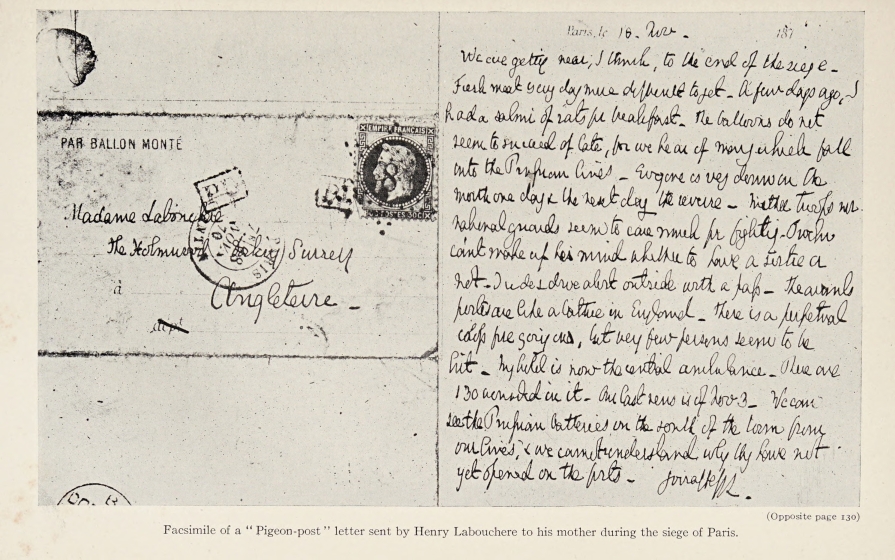 PAR BALLON MONTÉ
EMPIRE FRANÇAIS
Madame Labouchere
The Holmwood Surrey
à
Angleterre
dépt
PARIS
Paris, le 18. Nov. 187
We are getting near, I think, to the end of the siege -
Fresh meat every day more difficult to get - A few days ago, I
had a salmi of rats for breakfast. The balloons do not
seem to succeed of late, for we hear of many which fall
into the Prussian lines - Everyone is very down in the
mouth one day & the next day the reverse - Neither troops nor
national guards seem to care much for fighting - Trochu
can't make up his mind whether to have a sortie or
not - I ride & drive about outside with a pass - The
ports are like a in England - There is a perpetual
going on, but very few persons seem to be
hit - My hotel is now the central ambulance - There are
130 wounded in it - Our last news is of Nov 3 - We can
see the Prussian batteries on the south of the town from
our lines, & we cannot understand why they have not
yet opened on the forts -
(Opposite page 130)
Facsimile of a "Pigeon-post" letter sent by Henry Labouchere to his mother during the siege of Paris.